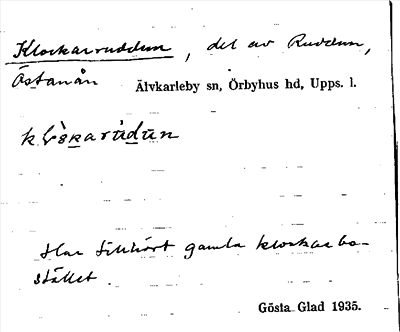 Klockarruddun, del av Ruddun,
Östanån Älvkarleby sn, Örbyhus hd, Upps. l.
Har tillhört gamla klockarbo-
stället.
Gösta Glad 1935.